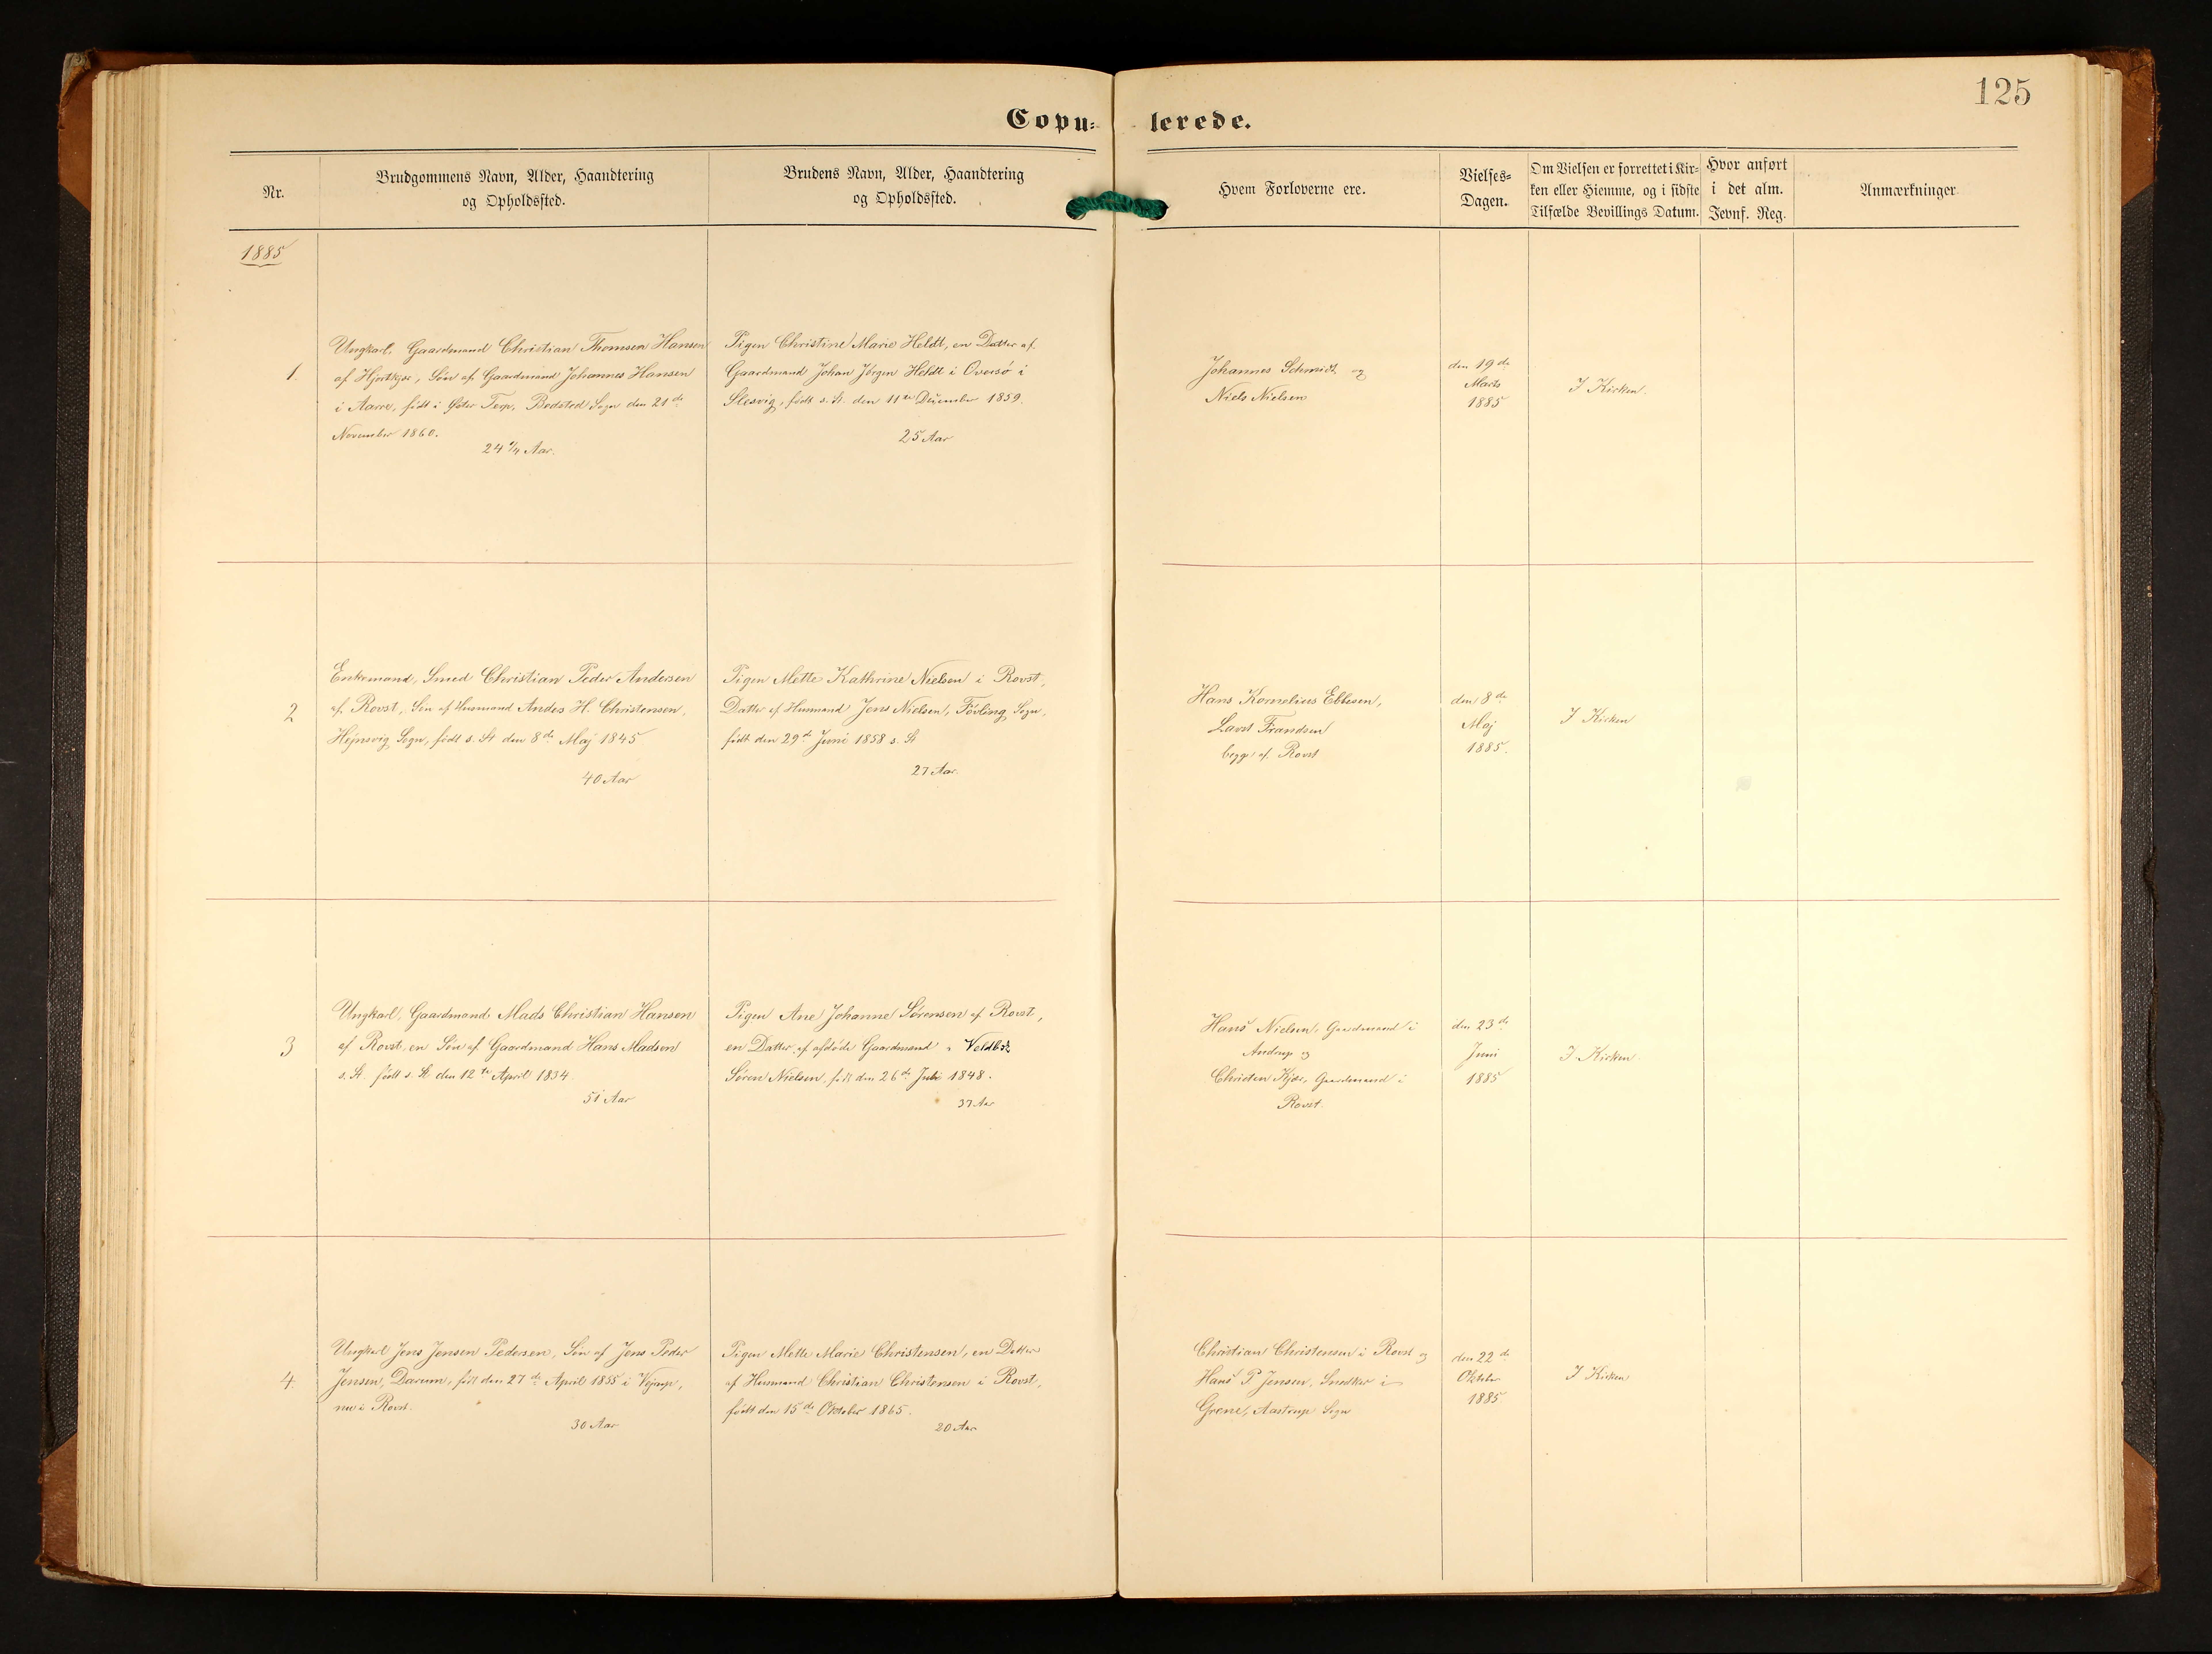 125
Copu= lerede.
Nr.
Brudgommens Navn, Alder, Haandtering
og Opholdssted.
Brudens Navn, Alder, Haandtering
og Opholdssted.
Hvem Forloverne ere.
Vielses=
Dagen.
Om Vielsen er forrettet i Kir=
ken eller Hiemme, og i sidste
Tilfælde Bevillings Datum.
Hvor anført
i det alm.
Jevnf. Reg.
Anmærkninger
1885
1.
Ungkarl, Gaardmand Christian Thomsen Hansen
af Hjortkjær, Søn af Gaardmand Johannes Hansen
i Aarre, født i Øster Terp, Bedsted Sogn den 21de
November 1860.
24 1/4 Aar.
Pigen Christine Marie Heldt, en Datter af
Gaardmand Johan Jörgen Heldt i Oversø i
Slesvig, født s. St. den 11te December 1859.
25 Aar
Johannes Schmidt og
Niels Nielsen
den 19de
Marts
1885
I Kirken.
2
Enkemand, Smed Christian Peder Andersen
af Rovst, Søn af Husmand Anders H. Christensen,
Hejnsvig Sogn, født s. St. den 8de Maj 1845
40 Aar
Pigen Mette Kathrine Nielsen i Rovst,
Datter af Husmand Jens Nielsen, Fövling Sogn,
født den 29de Juni 1858 s. St.
27 Aar.
Hans Kornelius Ebbesen,
Lavst Frandsen
begge af Rovst
den 8de
Maj
1885.
I Kirken
3
Ungkarl, Gaardmand Mads Christian Hansen
af Rovst, en Søn af Gaardmand Hans Madsen
s. St. født s. St. den 12te April 1834.
51 Aar
Pigen Ane Johanne Sørensen af Rovst,
en Datter af afdøde Gaardmand i Veldbæk
Søren Nielsen, født den 26de Juli 1848.
37 Aar
Hans Nielsen, Gaardmand i
Andrup og
Christen Kjær, Gaardmand i
Rovst.
den 23de
Juni
1885
I Kirken.
4.
Ungkarl Jens Jensen Pedersen, Søn af Jens Peder
Jensen, Darum, født den 27de April 1855 i Vejrup,
nu i Rovst.
30 Aar
Pigen Mette Marie Christensen, en Datter
af Husmand Christian Christensen i Rovst,
født den 15de Oktober 1865.
20 Aar
Christian Christensen i Rovst og
Hans P Jensen, Snedker i
Grene, Aastrup Sogn
den 22de
Oktober
1885
I Kirken